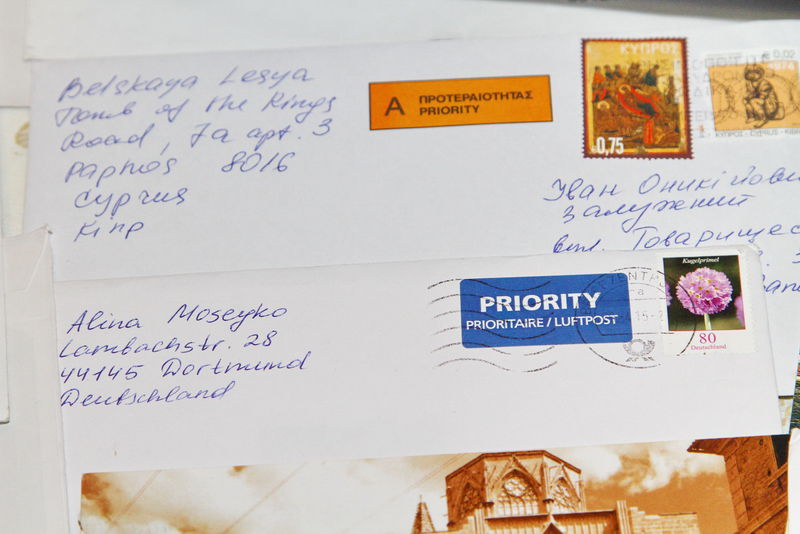 Belskaya Lesya
Tomb of the Kings
Road, 7a apt. 3
Paphos 8016
Cyprus
Кіпр
A ΠΡΟΤΕΡΑΙΟΤΗΤΑΣ
PRIORITY
ΚΥΠΡΟΣ
€0,75
0,02
ΚΥΠΡΟΣ - CYPRUS - KIBRIS
Іван Оникійови
Залужний
вул. Товарищес
Alina Moseyko
Lambachstr. 28
44145 Dortmund
Deutschland
PRIORITY
PRIORITAIRE / LUFTPOST
Kugelprimel
80
Deutschland